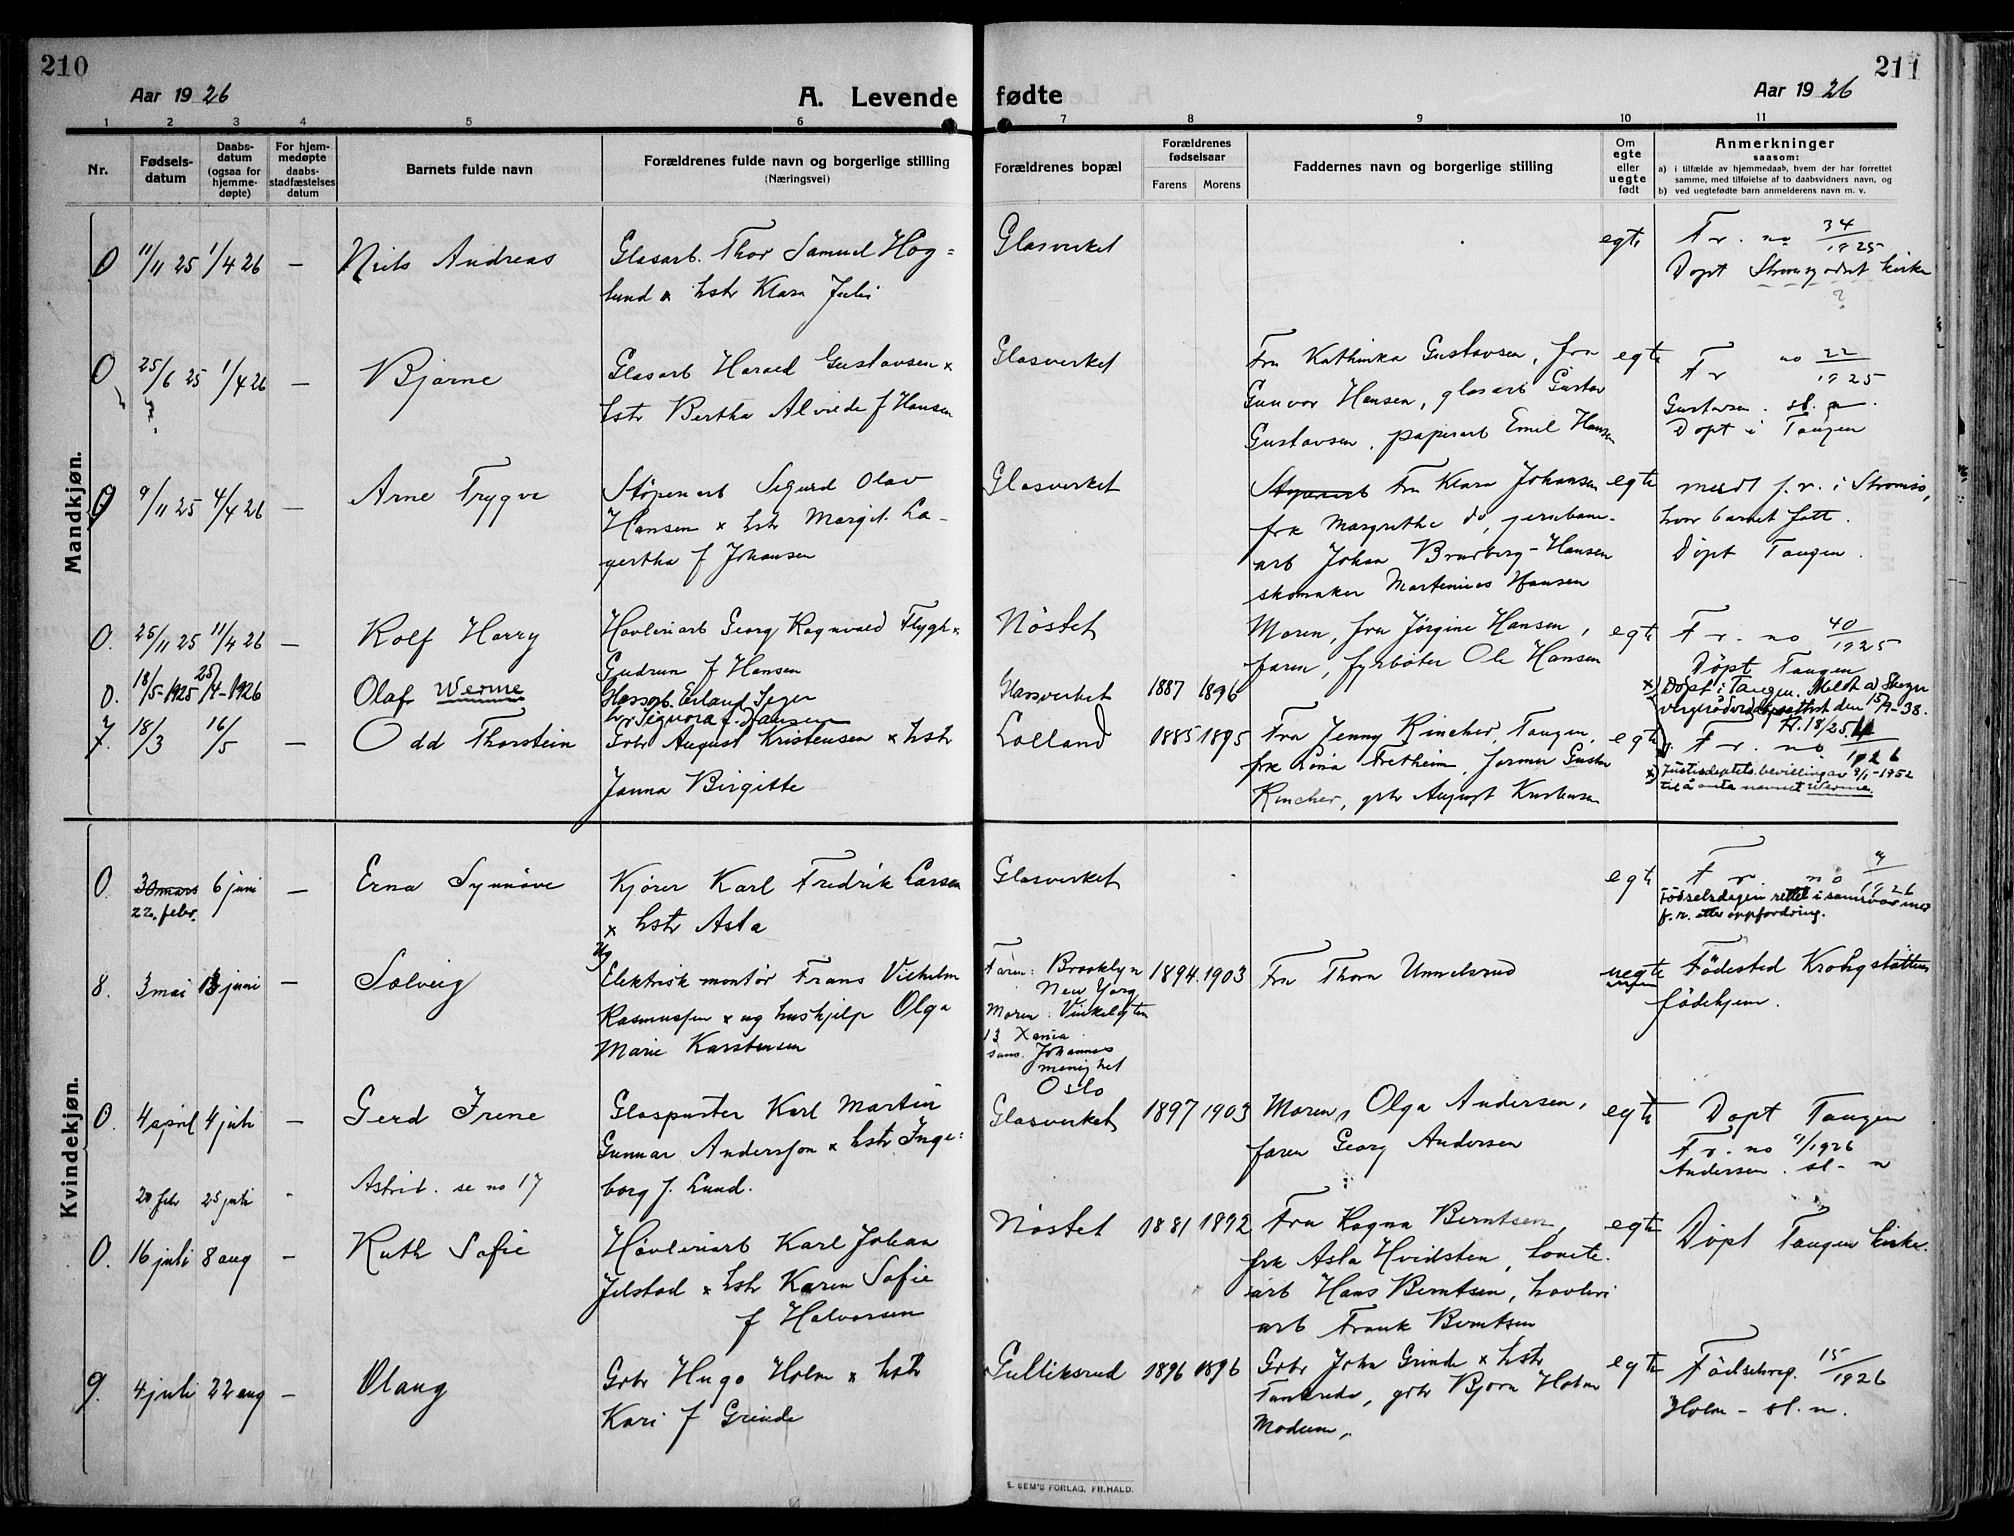 210
211
Aar 1926
A. Levende fødte
Aar 1926
1 2 3 4 5 6 7 8 9 10 11
Nr.
Fødsels-
datum
Daabs-
datum
(ogsaa for
hjemme-
døpte)
For hjem-
medøpte
daabs-
stadfæstelses
datum
Barnets fulde navn
Forældrenes fulde navn og borgerlige stilling
(Næringsvei)
Forældrenes bopæl
Forældrenes
fødselsaar
Farens Morens
Faddernes navn og borgerlige stilling
Om
egte
eller
uegte
født
Anmerkninger
saasom:
a) i tilfælde av hjemmedaab, hvem der har forrettet
samme, med tilføielse af to daabsvidners navn, og
b) ved uegtefødte barn anmelderens navn m. v.
Mandkjøn.
0 11/11 25 1/4 26 – Niels Andreas
Glasarb. Thor Samuel Hog=
lund x hstr Klara Julie
Glasverket
egte
F. r. no 34/1925
Døpt Strømsgodset kirke
?
0 25/6 25 1/4 26 – Bjarne
?
Glasarb Harald Gustavsen x
hstr Bertha Alvide f Hansen
Glasverket
Fru Kathinka Gustavsen, fru
Gunvor Hansen, glasarb Gustav
Gustavsen, papirarb Emil Hansen
egte
F r no 22/1925
Gustavsen. sl. n.
Døpt i Tangen
0 9/11 25 4/4 26 – Arne Trygve
Støperiarb Sigurd Olav
Hansen x hstr Margit La-
gertha f Johansen
Glasverket
Fru Klara Johansen
frk Margrethe do, jernbane-
arb Johan Brudberg-Hansen
skomaker Martinius Hansen
egte
meldt f. r. i Strømsø,
hvor barnet født.
Døpt Tangen.
0. 25/11 25 11/4 26 – Rolf Harry
Høvleriarb Georg Ragnvald Flygh x
Gudrun f Hansen
Nøstet
Moren, fru Jørgine Hansen,
faren, fyrbøter Ole Hansen
egte
F r. no 40/1925
Døpt Tangen
0. 18/5-1925 25/4-1926 Olaf Werme
Glassarb. Erland Seger
hstr Signora f. Hansen
Glassverket 1887 1896
x) Døpt i Tangen. Meldt av Skoger
vergeråd
7. 18/3 16/5 – Odd Thorstein
Grbr August Kristensen x hstr
Janna Birgitte
Lolland 1885 1895
Fru Jenny Rincher, Tangen,
frk Lina Fretheim, Gustav
Rincher, grbr August Kristensen
egte
F r. no 1926
x) Justisdeptets bevilling av 9/1-1952
til å anta navnet Werme
Kvindekjøn.
0. 30 mars 6 juni – Erna Synnøve
22. febr.
Kjører Karl Fredrik Larsen
x hstr Asta
Glasverket
egte
F r no 1926
Fødselsdagen rettet i samsvar med
f. r. etter oppfordring.
8. 3 mai 13 juni – Solveig
Ug
Elektrisk montør Frans Vilhelm
Rasmussen x ug hushjelp Olga
Marie Karstensen
Faren: Brooklyn
New York
Moren: Vinkelgten
13 Xania
sans. Johannes
menighet
Oslo
1894. 1903
Fru Thora Unnelsrud
uegte
Fødested Krohgstøttens
fødehjem.
0. 4 april 4 juli – Gerd Irene
Glaspuster Karl Martin
Gunnar Andersson x hstr Inge=
borg f. Lund.
Glasverket 1897 1903
Moren, Olga Andersen,
faren Georg Andersen
egte
Døpt Tangen
F. r. no 1926
Andersen. sl- n
20 febr 25 juli – Astrid. se no 17
0. 16 juli 8 aug – Ruth Sofie
Høvleriarb Karl Johan
Jelstad x hstr Karen Sofie
f Halvorsen
Nøstet 1881 1892
Fru Ragna Berntsen,
frk Asta Hvidsten, tomte-
arb Hans Berntsen, høvleri
arb Frank Berntsen
egte
Døpt Tangen kirke.
9. 4 juli 22 aug – Olaug
Grbr Hugo Holm x hstr
Kari f Grinde
Gulliksrud 1896 1896
Grbr John Grinde x hstr
Tankrede, grbr Bjørn Holm
Modum,
egte
Fødselsreg. 15/1926
Holm – sl. n.
E. SEM'S FORLAG, FR.HALD.